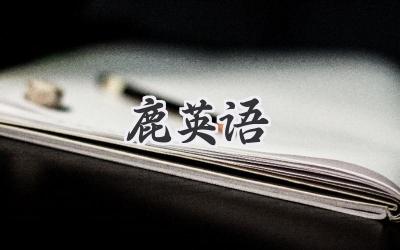 鹿英语